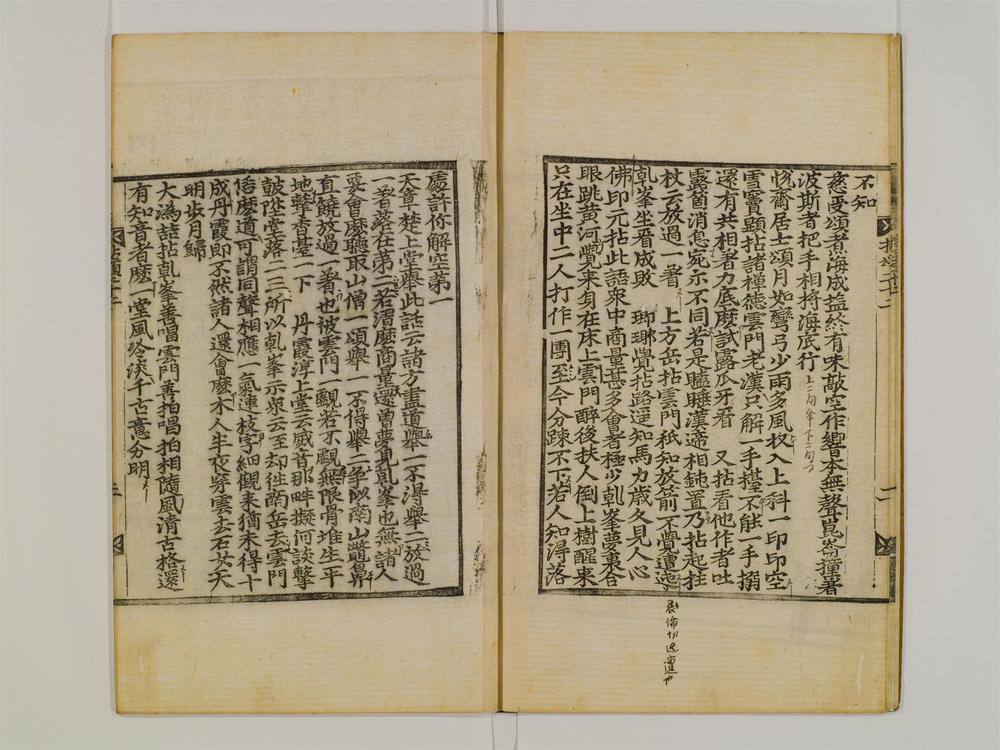 不知
慈受頌煮海成塩終有味敲空作響本無聲崑崙撞著
波斯者把手相將海底行
悅齋居士頌月如彎弓少雨多風扠入上科一印印空
雪竇顯拈諸禪德雲門老漢只解一手擡不能一手搦
還有共相著力底麽試露爪牙看 又拈看他作者吐
露箇消息宛尒不同若是瞌睡漢適相鈍置乃拈起拄
杖云放過一著 上方岳拈雲門秖知放箭不覺遭
乹峯坐看成敗 瑯瑘覺拈路遥知馬力歳久見人心
佛印元拈此語衆中商量甚多會者極少乹峯夢裏合
眼跳黃河覺来身在床上雲門醉後扶人倒上樹醒来
只在坐中二人打作一團至今分踈不下若人知得落
處許你解空第一
天章楚上堂舉此話云諸方盡道舉一不得舉二放過
一著落在第二若渭麽商量還曾夢見乹峯也無諸人
要會麽聽取山僧一頌舉一不得舉二爭似南山鼈鼻
直饒放過一著也被雲門一覰若不覰無限骨堆生平
地擊香臺一下 丹霞淳上堂云威音那畔擬何談擊
皷陞堂落二三所以乹峯示衆云至却徃南岳去雲門
恁麽道可謂同聲相應一氣連枝字細觀来猶未得十
成丹霞即不然諸人還會麽木人半夜穿雲去石女天
明步月歸
大潙喆拈乹峯善唱雲門善拍唱拍相隨風清古格還
有知音者麽一堂風冷淡千古意分明